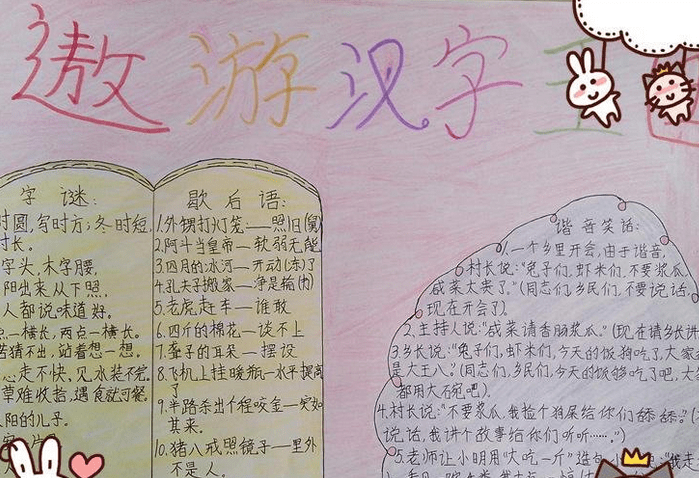 遨游汉字王
字谜:
时圆,写时方;冬时短,
时长。
字头,木字腰,
阳出来从下照,
人都说味道好。
一横长,两点一横长。
猜不出,站着想一想。
心走不快,见水装不完,
草难收拾,遇食就可餐。
阳的儿子。
歇后语:
1.外甥打灯笼——照旧(舅)
2.阿斗当皇帝——软弱无能
3.四月的冰河——开动(冻)了
4.孔夫子搬家——净是输(书)
5.老虎赶车——谁敢
6.四斤的棉花——谈不上
7.聋子的耳朵——摆设
8.飞机上挂暖瓶—水平提高
了
9.半路杀出个程咬金—突如
其来。
10.猪八戒照镜子—里外
不是人。
谐音笑话:
1.一个乡里开会,由于谐音,
村长说:“兔子们,虾米们,不要浆瓜,
咸菜太贵了。”(同志们,乡民们,不要说话,
现在开会了)
2.主持人说:“咸菜请香肠浆瓜。”(现在请乡长讲
3.乡长说:“兔子们,虾米们,今天的饭狗吃了,大家
是大王八。”(同志们,乡民们,今天的饭够吃了吧,大
都用大碗吧).
4.村长说:“不要浆瓜,我捡个狗屎给你们舔舔。”(
说话,我讲个故事给你们听听……”)
5.老师让小明用“大吃一斤”造句,小